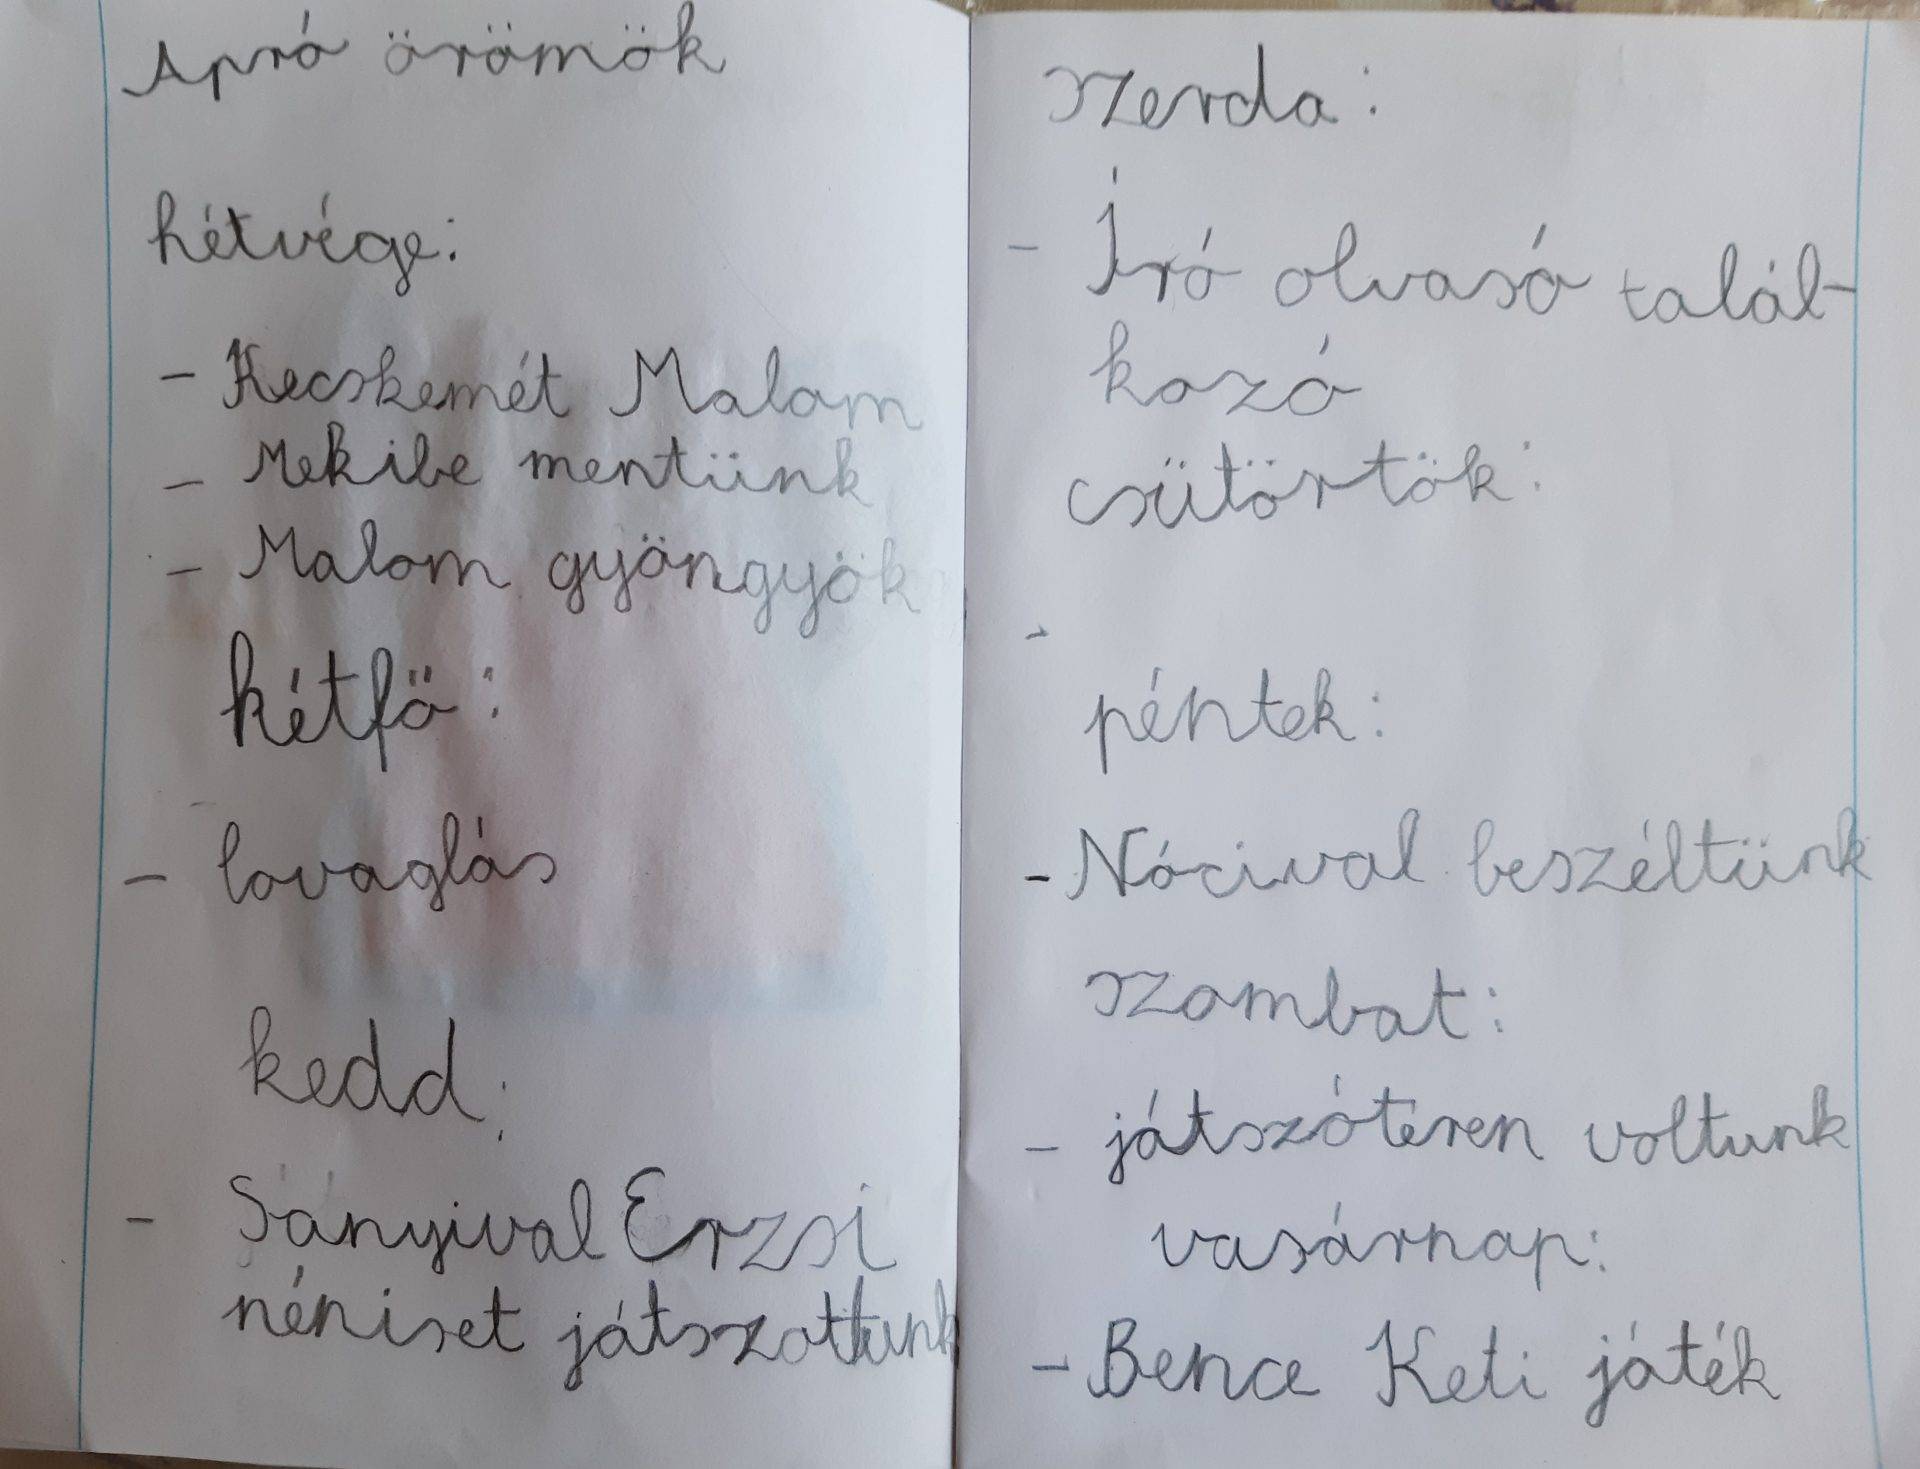 Apró örömök
hétvége:
- Kecskemét Malom
- Mekibe mentünk
- Malom gyöngyök
hétfö:
- lovaglás
kedd:
- Sányival Erzsi
néniset játszottunk
szerda:
- Író olvasó talál-
kozó
csütörtök:
-
péntek:
- Nócival beszéltünk
szombat:
- játszótéren voltunk
vasárnap:
- Bence Keti játék